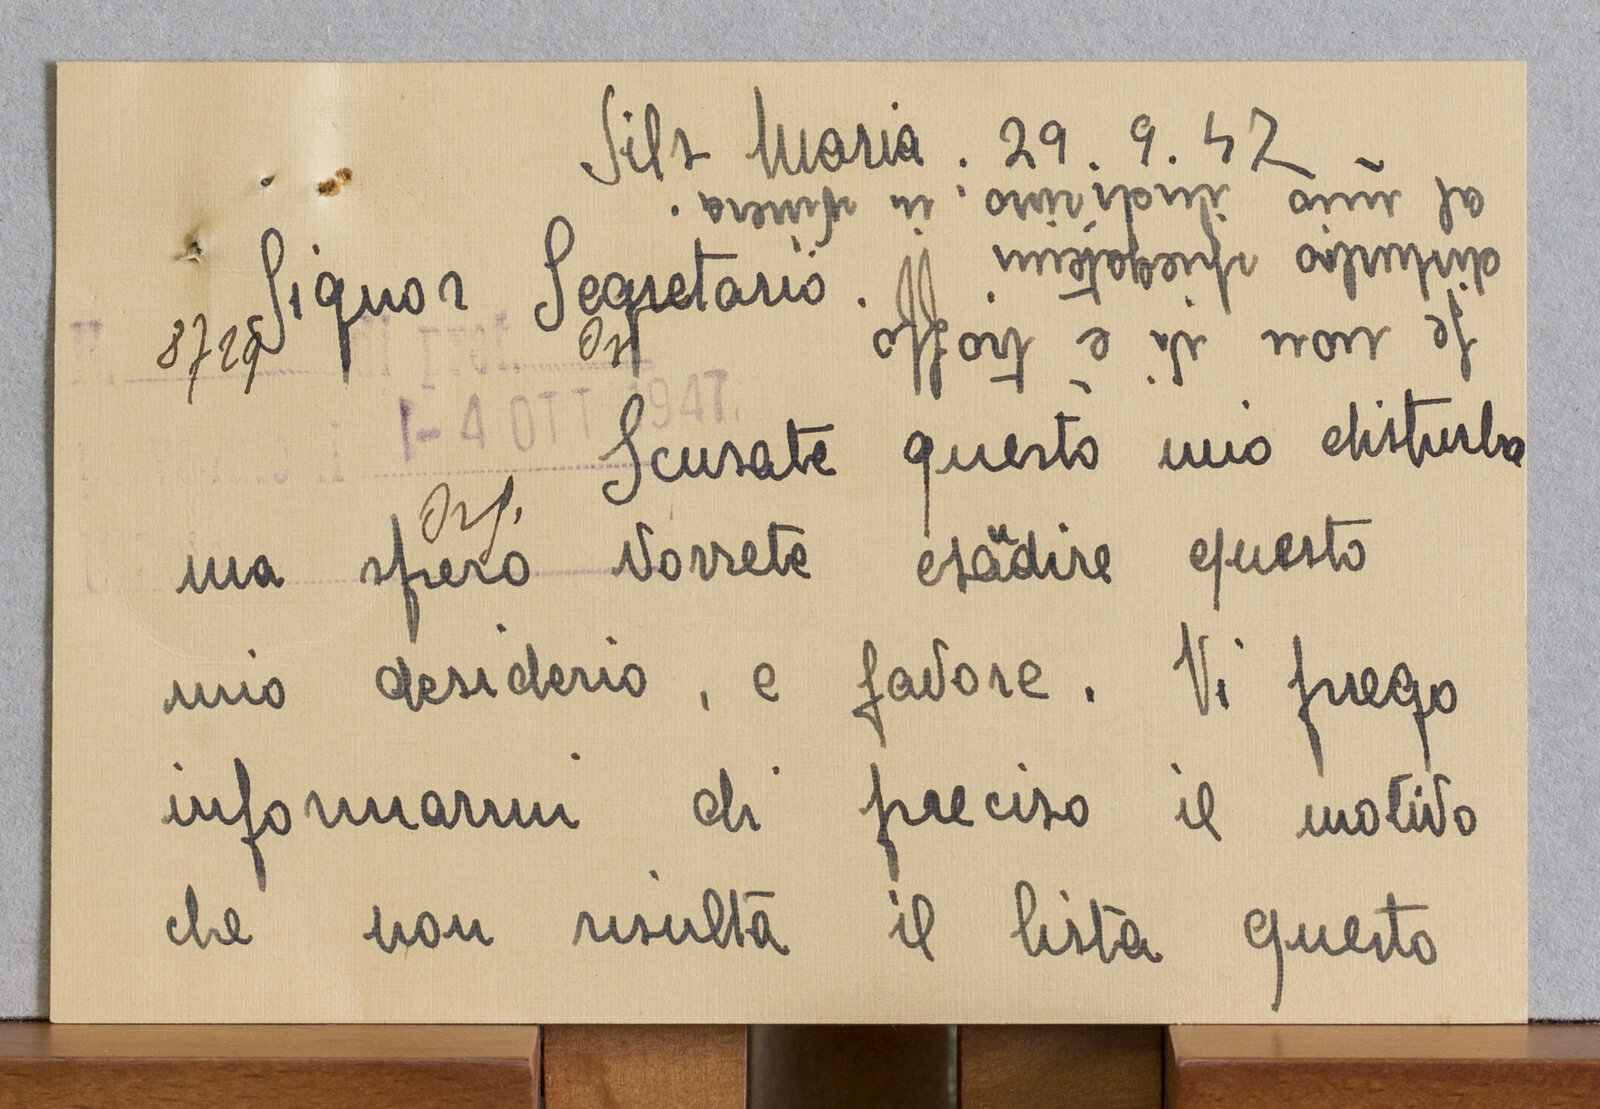 Sils Maria. 29. 9. 47
Signor Segretario.
8729
N. di prot.
- 4 OTT 1947
Scusate questo mio disturbo
ma spero vorrete esaudire questo
mio desiderio, e favore. Vi prego
informarmi di preciso il motivo
che non risulta il lista questo
Se non vi è troppo
disturbo spiegatemi
al mio indirizzo: in Svizzera.